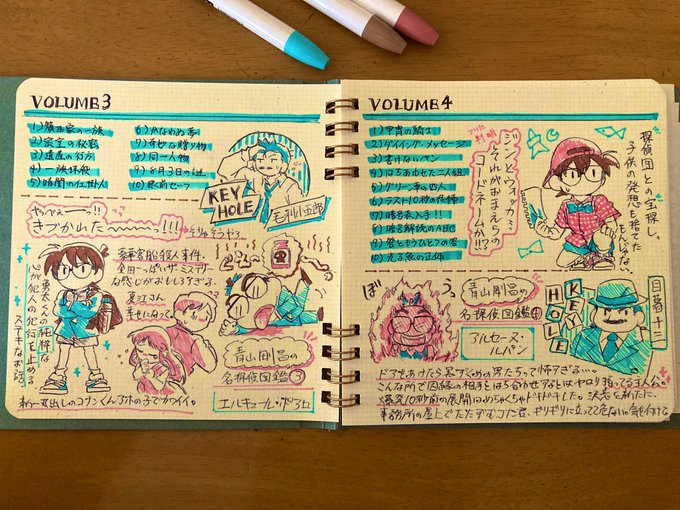 VOLUME3
1)旗本家の一族
2)密室の秘密
3)遺産の行方
4)一族抹殺
5)暗闇の仕掛人
6)かなわぬ夢
7)奇妙な贈り物
8)同一人物
9)8月3日の謎
10)駅前セーフ
KEY
HOLE
毛利小五郎
やっべェ〜〜っ!!
きづかれた〜〜〜!!!
そりゃそうやろ
豪華客船殺人事件、
金田一っぽいザ・ミステリー
な感じがおもしろすぎる。
夏江さん
幸せになって
勇太くんの純粋な
心が犯人の犯行を止める
ステキなお話
青山剛昌の
名探偵図鑑③
エルキュール・ポアロ
新一丸出しのコナンくん 外の子でカワイイ。
VOLUME4
1)甲冑の騎士
2)ダイイング・メッセージ
3)書けないペン
4)はちあわせた二人組
5)グリーン車の四人
6)ラスト10秒の恐怖
7)暗号表入手!!
8)暗号解読のABC
9)答ともうひとつの答
10)光る魚の正体
ついに判明
ジンとウォッカ…
それがおまえらの
コードネームか!!?
探偵団との宝探し。
子供の発想も捨てた
もんじゃない
ぼ
う
青山剛昌の
名探偵図鑑④
アルセーヌ・
ルパン
KEY
HOLE
目暮十三
ドアをあけたら黒ずくめの男たちって怖すぎる…。
こんな所で因縁の相手とはち合わせなどしはやはり持ってる主人公。
爆発10秒前の展開はめちゃくちゃドキドキした。決意を新たに、
事務所の屋上でたたずむコナン君、ギリギリに立ってて危ないので気を付けて